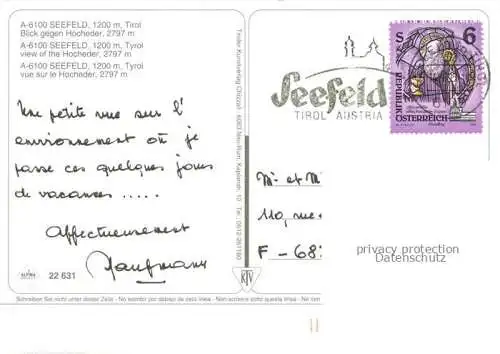 A-6100 SEEFELD, 1200 m, Tirol
Blick gegen Hocheder, 2797 m
A-6100 SEEFELD, 1200 m, Tyrol
view of the Hocheder, 2797 m
A-6100 SEEFELD, 1200 m, Tyrol
vue sur le Hocheder, 2797 m
Une petite vue sur l'
environnement où je
passe ces quelques jours
de vacances .....
Affectueusement
Kaufmann
ALPINA
22 631
Tiroler Kunstverlag Chizzali · 6063 Neu-Rum, Kaplanstr. 10
KTV
Seefeld
TIROL AUSTRIA
S 6
REPUBLIK
ÖSTERREICH
M. et M
110, rue
F - 68
privacy protection
Datenschutz
Schreiben Sie nicht unter dieser Zeile - No escribir por debajo de esta linea - Non scrivere sotto questa linea - Ne